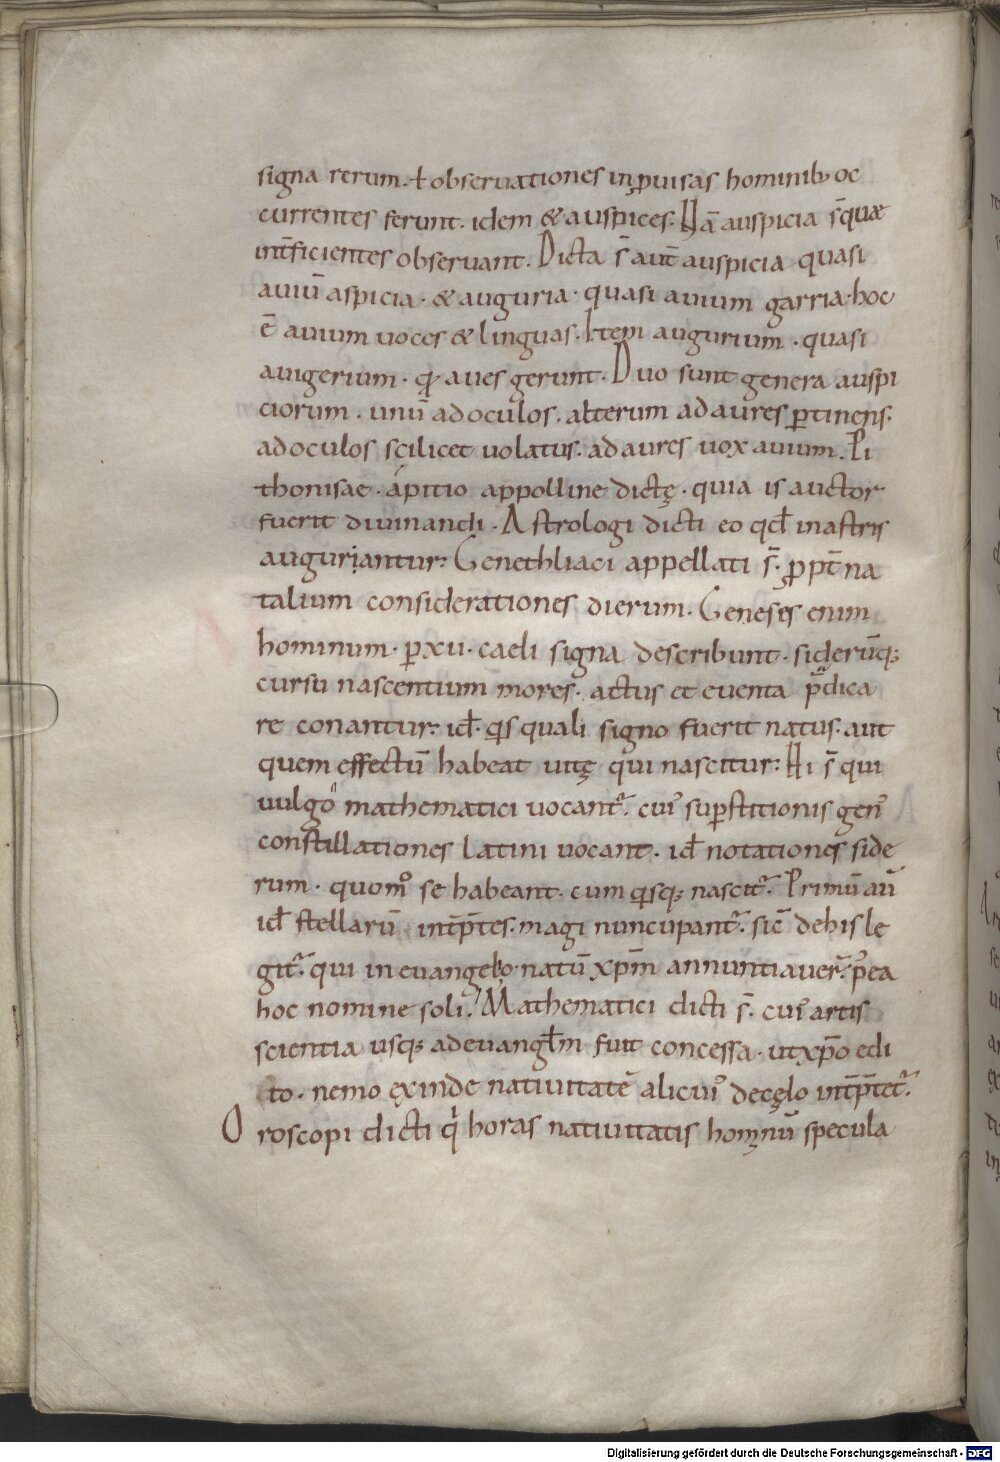 signa rerum. ł obseruationes inp̱uisas hominib; oc
currentes ferunt. idem & auspices. Nā auspicia s̄ quæ
int̄ficientes obseruant. Dicta s̄ aut̄ auspicia quasi
auiū aspicia. & auguria. quasi auium garria. hoc
ē auium uoces & linguas. Item augurium. quasi
auigerium. qđ aues gerunt. Duo sunt genera auspi
ciorum. unū ad oculos. alterum ad aures ꝑtinens.
ad oculos scilicet uolatus. ad aures uox auium. Pi
thonisae. apitio appolline dictę. quia is auctor
fuerit diuinandi. Astrologi dicti eo qđ in astris
auguriantur. Genethliaci appellati s̄. ꝓpt̄ na
talium considerationes dierum. Geneses enim
hominum. ꝑ xii. caeli signa describunt. siderūq;
cursu nascentium mores. actus et euenta p̄dica
re conantur. id. q̱s quali signo fuerit natus. aut
quem effectū habeat uitę qui nascitur. Hi s̄ qui
uulgo mathematici uocant᷑. cui᷒ suꝑstitionis gen᷒
constillationes latini uocant. id notationes side
rum. quomͦ se habeant. cum q̱sq; nascit᷑. Primū aū
id stellarū int̄p̄tes. magi nuncupant᷑. sic̄ de his le
git᷑. qui in euangelio natū xp̄m annuntiauer᷑. p᷒ea
hoc nomine soli. Mathematici dicti s̄. cui᷒ artis
scientia usq; ad euangłm fuit concessa. ut xp̄o edi
to. nemo exinde natiuitatē alicui᷒ de cęlo int̄p̄tet᷑.
Oroscopi dicti qͥ horas natiuitatis hominū specula